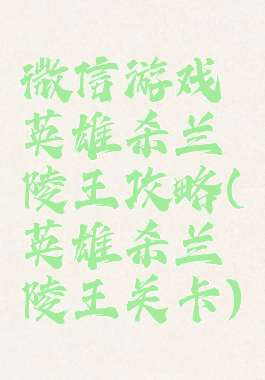 微信游戏
英雄杀兰
陵王攻略(
英雄杀兰
陵王关卡)